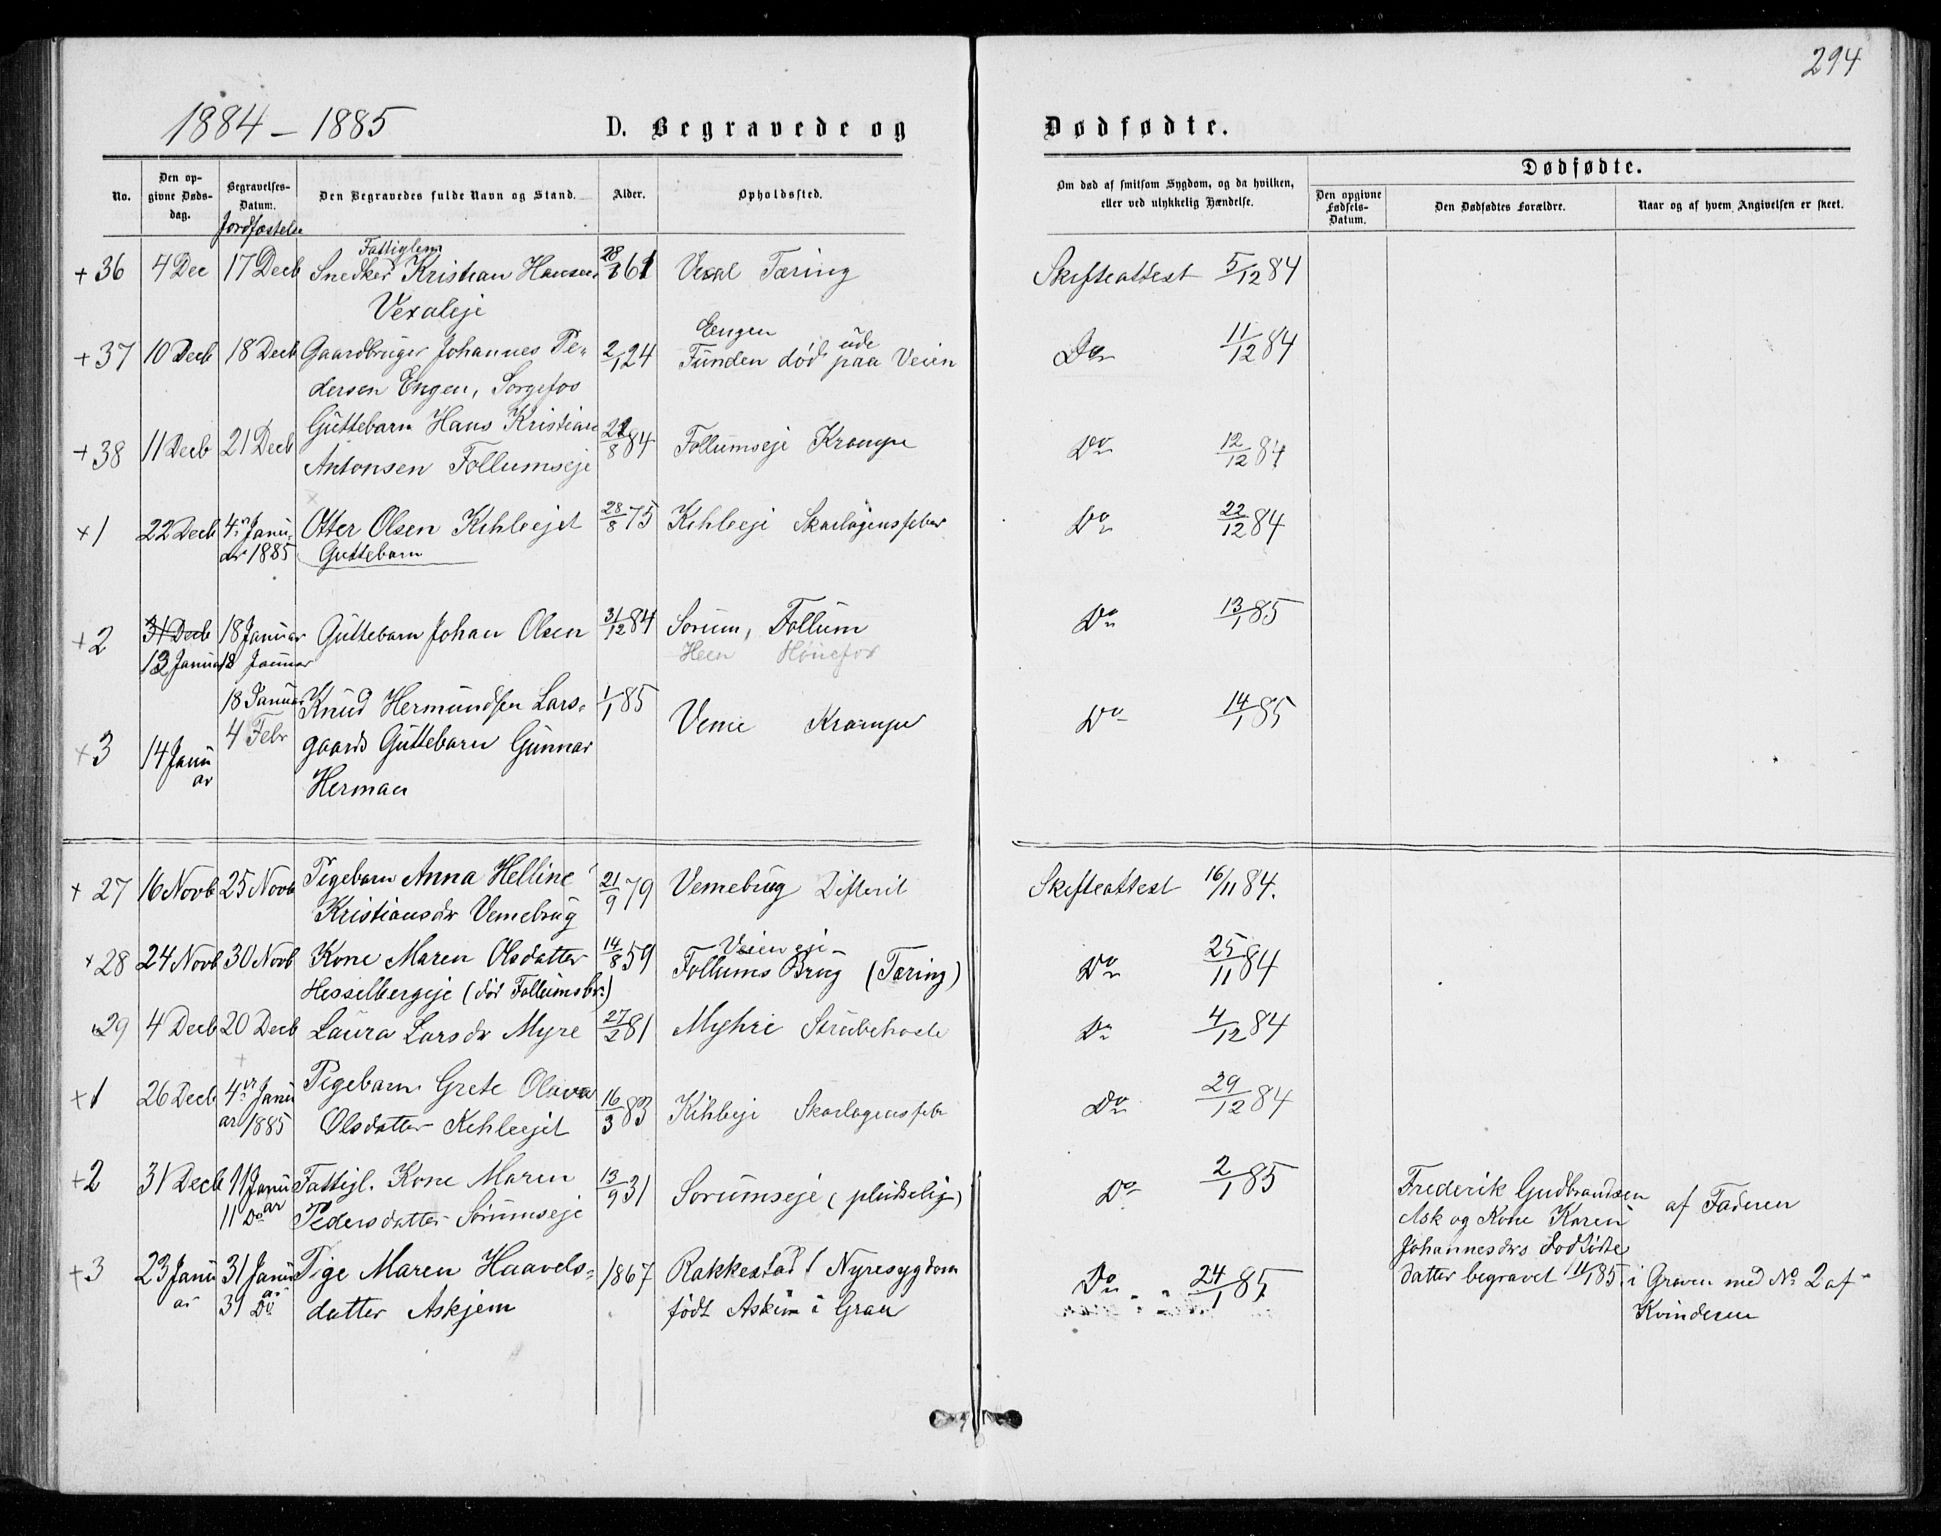 294
1884 – 1885
D. Begravede og Dødfødte.
No.
Den opgivne Dødsdag.
Begravelses-Datum.
Jordfæstelse
Den Begravedes fulde Navn og Stand.
Alder.
Opholdssted.
Om død af smitsom Sygdom, og da hvilken,
eller ved ulykkelig Hændelse.
Dødfødte.
Den opgivne Fødsels-Datum.
Den Dødfødtes Forældre.
Naar og af hvem Angivelsen er skeet.
Fattiglem
+ 36 4 Dec 17 Decb Snedker Kristian Hansen 28/8 61 Vexal Tæring Skifteattest 5/12 84
Vexaleje
Engen
+ 37 10 Decb 18 Decb Gaardbruger Johannes Pe- 2/1 24 Funden død ude paa Veien Do 11/12 84
dersen Engen, Sorgefos
Guttebarn Hans Kristian
+ 38 11 Decb 21 Decb Antonsen Follumseje 22/8 84 Follumseje Krampe Do 12/12 84
+ 1 22 Decb 4 Janu- Otter Olsen Kihleejet 28/8 75 Kihleeje Skarlagensfeber Do 22/12 84
ar 1885 Guttebarn
+ 2 31 Decb 18 Januar Guttebarn Johan Olsen 31/12 84 Sorum, Follum Do 13/1 85
13 Januar 18 Januar Heen Hönefos
18 Januar Knud Hermundsen Lars- 1/1 85
+ 3 14 Janu 4 Febr gaards Guttebarn Gunnar Veme Krampe Do 14/1 85
ar Herman
+ 27 16 Novb 25 Novb Pigebarn Anna Helline 21/9 79 Vemebrug Difterit Skifteattest 16/11 84.
Kristiansdr Vemebrug
Veien eje
+ 28 24 Novb 30 Novb Kone Maren Olsdatter 14/8 59 Follums Brug (Tæring) Do 25/11 84
Hesselbergeje (død Follumsbr.)
29 4 Decb 20 Decb Laura Larsdr Myre 27/2 81 Myhre Strubehoste Do 4/12 84
+ 1 26 Decb 4 Janu Pigebarn Grete Olava 16/3 83 Kihleeje Skarlagensfeb Do 29/12 84
ar 1885 Olsdatter Kehleejet
+ 2 31 Decb 11 Janu Fattigl. Kone Maren 13/9 31 Sorumseje (pludselig) Do 2/1 85
ar
11 Do Pedersdatter Sørumseje
Frederik Gudbrandsen
Ask og Kone Karen
Johannesdrs Dodfødte
datter begravet 11/1 85
af Faderen
i Graven med No 2 af
Kvinderne
+ 3 23 Janu 31 Janu Pige Maren Haavels- 1867 Rakkestad / Nyresygdom Do 24/1 85
ar ar
31 Do datter Askjem født Askim i Gran